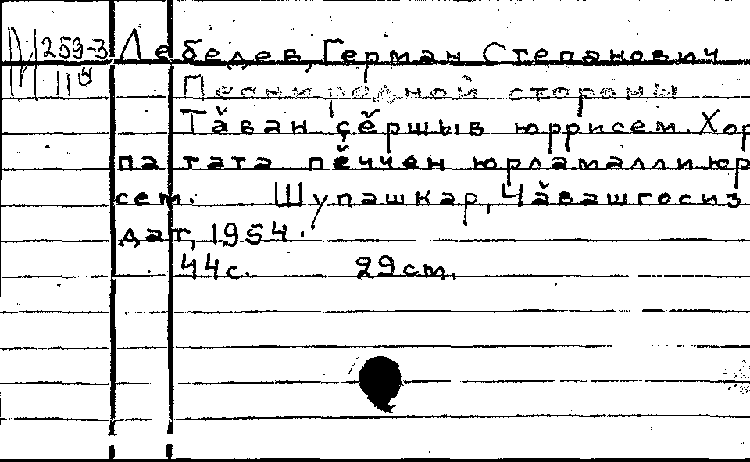 М 259-3 Лебедев, Герман Степанович
118
Песни родной стороны
Тăван çĕршыв юррисем. Хор
па тата пĕччен юрламалли юр
сем. Шупашкар, Чăвашгосиз
дат, 1954.
44с. 29 cm.